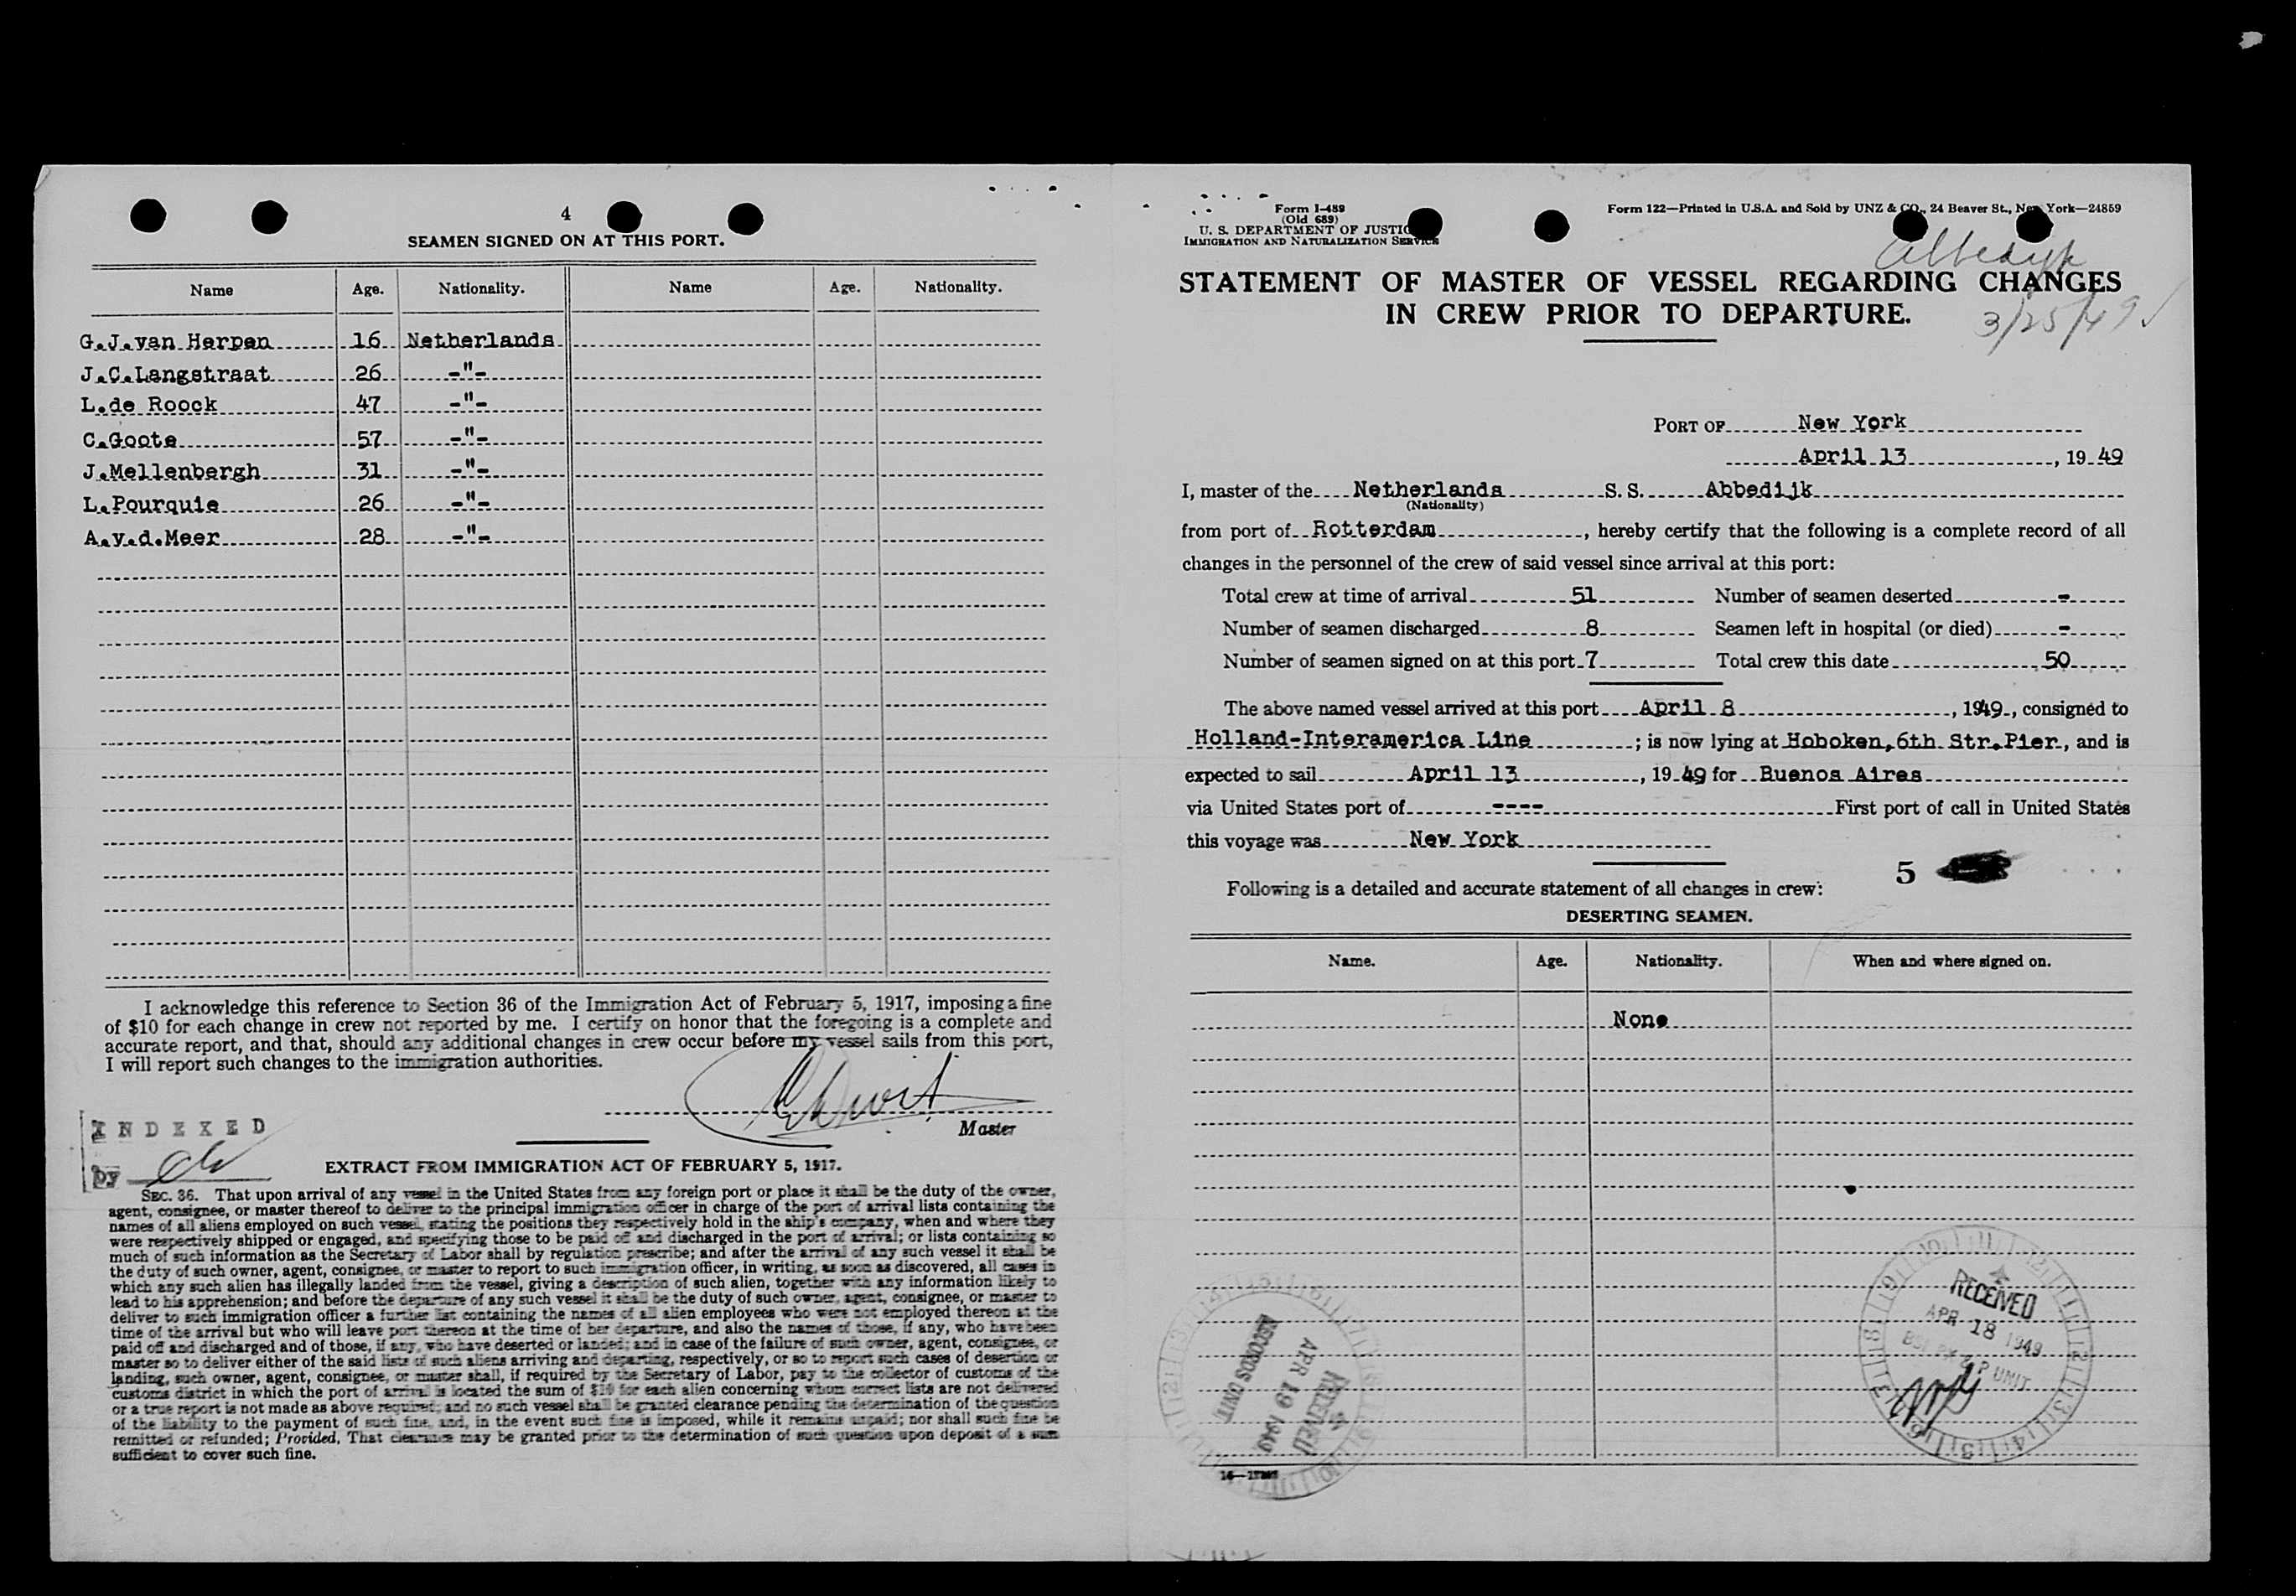 4
SEAMEN SIGNED ON AT THIS PORT.
Name Age. Nationality. Name Age. Nationality.
G.J.van Herpen 16 Netherlands
J.C.Langstraat 26 -"-
L.de Roock 47 -"-
C.Goote 57 -"-
J.Mellenbergh 31 -"-
L.Pourquie 26 -"-
A.v.d.Meer 28 -"-
I acknowledge this reference to Section 36 of the Immigration Act of February 5, 1917, imposing a fine
of $10 for each change in crew not reported by me. I certify on honor that the foregoing is a complete and
accurate report, and that, should any additional changes in crew occur before my vessel sails from this port,
I will report such changes to the immigration authorities.
Master
INDEXED
by
EXTRACT FROM IMMIGRATION ACT OF FEBRUARY 5, 1917.
SEC. 36. That upon arrival of any vessel in the United States from any foreign port or place it shall be the duty of the owner,
agent, consignee, or master thereof to deliver to the principal immigration officer in charge of the port of arrival lists containing the
names of all aliens employed on such vessel, stating the positions they respectively hold in the ship's company, when and where they
were respectively shipped or engaged, and specifying those to be paid off and discharged in the port of arrival; or lists containing so
much of such information as the Secretary of Labor shall by regulation prescribe; and after the arrival of any such vessel it shall be
the duty of such owner, agent, consignee, or master to report to such immigration officer, in writing, as soon as discovered, all cases in
which any such alien has illegally landed from the vessel, giving a description of such alien, together with any information likely to
lead to his apprehension; and before the departure of any such vessel it shall be the duty of such owner, agent, consignee, or master to
deliver to such immigration officer a further list containing the names of all alien employees who were not employed thereon at the
time of the arrival but who will leave port thereon at the time of her departure, and also the names of those, if any, who have been
paid off and discharged and of those, if any, who have deserted or landed; and in case of the failure of such owner, agent, consignee, or
master so to deliver either of the said lists of such aliens arriving and departing, respectively, or so to report such cases of desertion or
landing, such owner, agent, consignee, or master shall, if required by the Secretary of Labor, pay to the collector of customs of the
customs district in which the port of arrival is located the sum of $10 for each alien concerning whom correct lists are not delivered
or a true report is not made as above required; and no such vessel shall be granted clearance pending the determination of the question
of the liability to the payment of such fine, and, in the event such fine is imposed, while it remains unpaid; nor shall such fine be
remitted or refunded; Provided, That clearance may be granted prior to the determination of such question upon deposit of a sum
sufficient to cover such fine.
Form I-489
(Old 689)
U. S. DEPARTMENT OF JUSTICE
IMMIGRATION AND NATURALIZATION SERVICE
Form 122—Printed in U.S.A. and Sold by UNZ & CO., 24 Beaver St., New York—24859
Abbedyk
STATEMENT OF MASTER OF VESSEL REGARDING CHANGES
IN CREW PRIOR TO DEPARTURE.
3/25/49 ✓
PORT OF New York
April 13, 19 49
I, master of the Netherlands S. S. Abbedijk
(Nationality)
from port of Rotterdam, hereby certify that the following is a complete record of all
changes in the personnel of the crew of said vessel since arrival at this port:
Total crew at time of arrival 51 Number of seamen deserted -
Number of seamen discharged 8 Seamen left in hospital (or died) -
Number of seamen signed on at this port 7 Total crew this date 50
The above named vessel arrived at this port April 8, 1949, consigned to
Holland-Interamerica Line; is now lying at Hoboken, 6th Str.Pier, and is
expected to sail April 13, 19 49 for Buenos Aires
via United States port of ---- First port of call in United States
this voyage was New York
5
Following is a detailed and accurate statement of all changes in crew:
DESERTING SEAMEN.
Name. Age. Nationality. When and where signed on.
None
RECEIVED
APR 18 1949
UNIT
RECEIVED
APR 19 1949
RECORDS UNIT